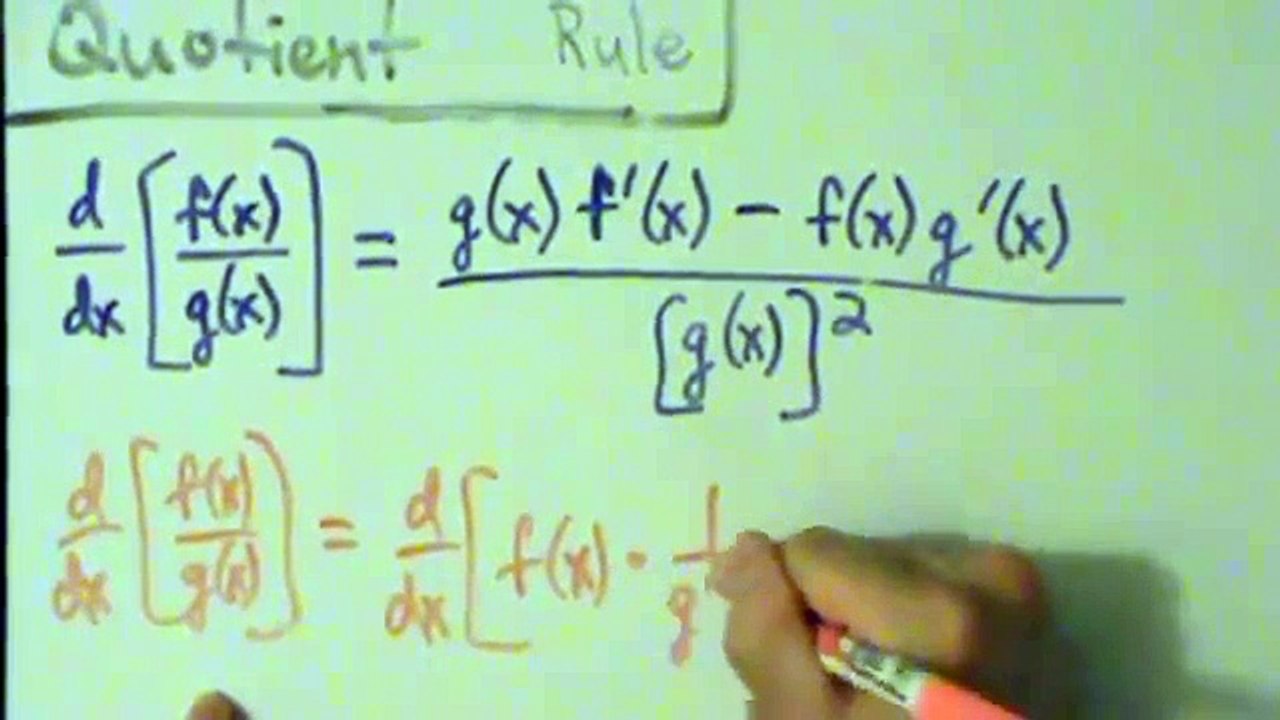 Quotient Rule
d/dx [f(x)/g(x)] = g(x) f'(x) - f(x) g'(x) / [g(x)]²
d/dx [f(x)/g(x)] = d/dx [f(x) · 1/g